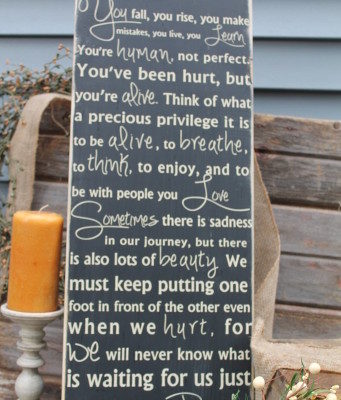 You fall, you rise, you make
mistakes, you live, you Learn.
You're human, not perfect.
You've been hurt, but
you're alive. Think of what
a precious privilege it is
to be alive, to breathe,
to think, to enjoy, and to
be with people you Love
Sometimes there is sadness
in our journey, but there
is also lots of beauty. We
must keep putting one
foot in front of the other even
when we hurt, for
we will never know what
is waiting for us just